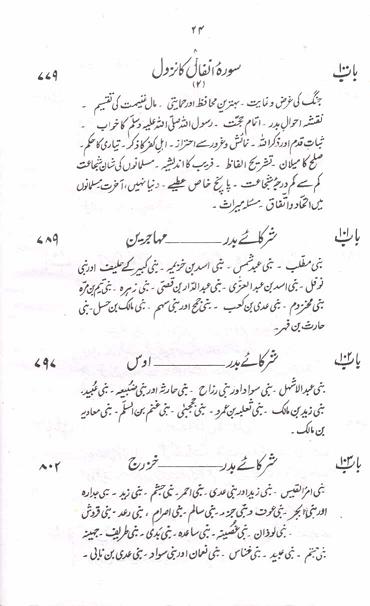 ۲۴
باب ۱۰۰ سورۂ انفال کا نزول ۷۷۹
(۲)
جنگ کی غرض و غایت۔ بہترین محافظ اور حمایتی ۔ مال غنیمت کی تقسیم ۔
نقشہ احوالِ بدر ۔ اتمام حجت ۔ رسول اللہ صلی اللہ علیہ وسلم کا خراب ۔
ثبات قدم اور ذکر اللہ ۔ نمائش و غرور سے احتراز ۔ اہل کفر کا ذکر ۔ تیاری کا حکم ۔
صلح کا میلان ۔ تشریح الفاظ ۔ فریب کا اندیشہ ۔ مسلمانوں کی شان شجاعت
کم سے کم درجۂ شجاعت ۔ پانچ خاص عطیے ۔ دنیا نہیں، آخرت ۔ مسلمانوں
میں اتحاد و اتفاق ۔ مسئلہ میراث ۔
باب ۱۰۱ شرکائے بدر ـــــ مہاجرین ۷۸۹
بنی مطلب ۔ بنی عبد شمس ۔ بنی اسد بن خزیمہ ۔ بنی کبیر کے حلیف اور بنی
نوفل ۔ بنی اسد بن عبد العزّی ۔ بنی عبد الدّار بن قصّی ۔ بنی زہرہ ۔ بنی تیم بن مرّہ
بنی مخزوم ۔ بنی عدی بن کعب ۔ بنی جمح اور بنی سہم ۔ بنی مالک بن حسل۔ بنی
حارث بن فہر۔
باب ۱۰۲ شرکائے بدر ـــــ اوس ۷۹۷
بنی عبد الاشہل ۔ بنی سواد اور بنی رزاح ۔ بنی حارثہ اور بنی ضُبیعہ ۔ بنی عُبید،
بنی زید بن مالک ۔ بنی ثعلبہ بن عمرو ۔ بنی جحجبٰی ۔ بنی غنم بن السلّم ۔ بنی معاویہ
بن مالک ۔
باب ۱۰۳ شرکائے بدر ـــــ خزرج ۸۰۲
بنی امرأ القیس ۔ بنی زید اور بنی عدی ۔ بنی احمر ۔ بنی جشم ۔ بنی زید ۔ بنی جدارہ
اور بنی الابجر ۔ بنی عوف و بنی جزء ۔ بنی سالم ۔ بنی اصرام ، بنی رعد ۔ بنی قروش
۔ بنی لوذان ۔ بنی ساعدہ ۔ بنی بَدی ۔ بنی طریف ۔ جہینہ
بنی جشم ۔ بنی عبید ۔ بنی خناس ۔ بنی نعمان اور بنی سواد ۔ بنی عدی بن نابی ۔